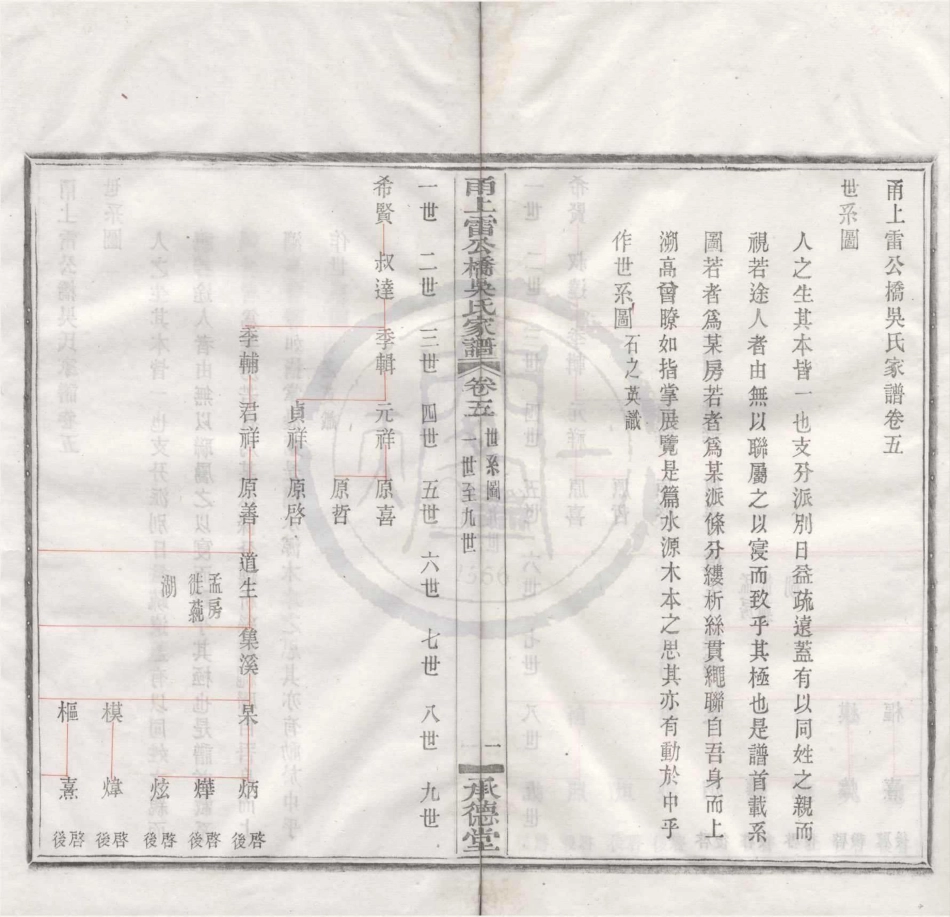 甬上雷公橋吳氏家譜卷五
世系圖
人之生其本皆一也支分派別日益疏遠蓋有以同姓之親而
視若途人者由無以聯屬之以寖而致乎其極也是譜首載系
圖若者爲某房若者爲某派條分縷析絲貫繩聯自吾身而上
溯高曾瞭如指掌展覽是篇水源木本之思其亦有動於中乎
作世系圖 石之英識
甬上雷公橋吳氏家譜 卷五 世系圖 一世至九世 一 承德堂
一世 二世 三世 四世 五世 六世 七世 八世 九世
希賢 叔達 季輯 元祥 原喜
原哲
貞祥 原啓
季輔 君祥 原善 道生 集溪 杲 炳 啓後
孟房
徙蕪 燁 啓後
湖 炫 啓後
模 煒 啓後
樞 熹 啓後